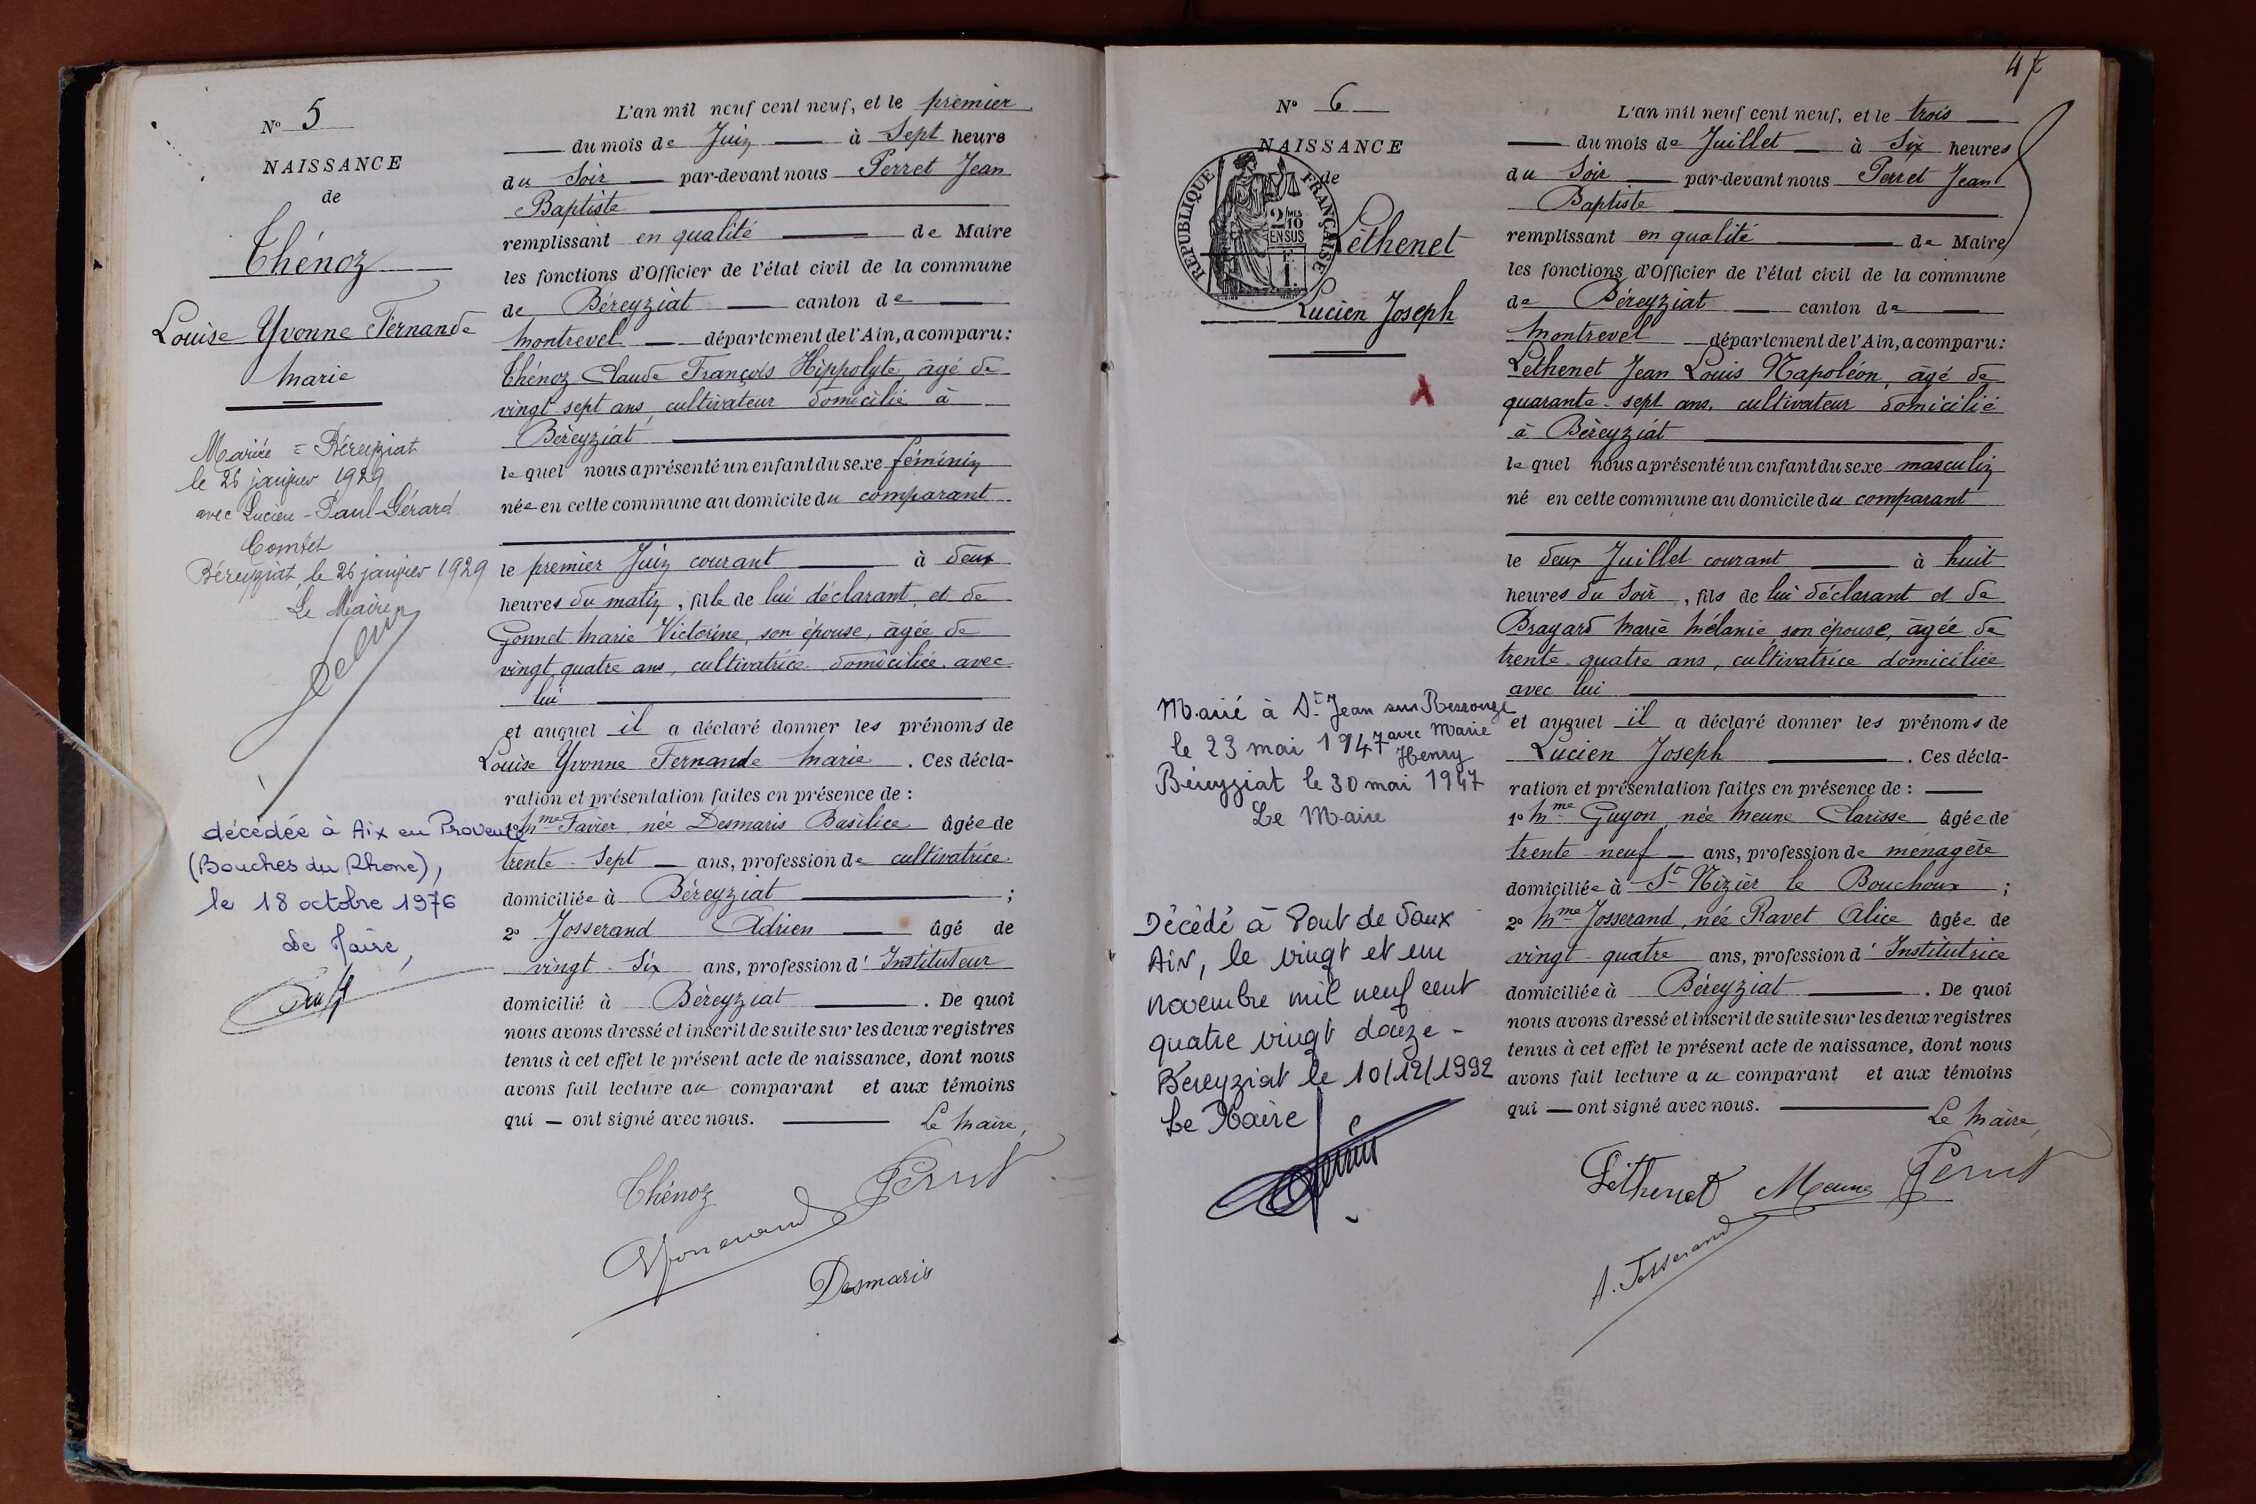 N° 5
NAISSANCE
de
Thénoz
Louise Yvonne Fernande
Marie
Mariée à Béreyziat
le 26 janvier 1929
avec Lucien-Paul-Gérard
Comtet
Béreyziat, le 26 janvier 1929
Le Maire
décédée à Aix en Provence
(Bouches du Rhone),
le 18 octobre 1976
Le Maire,
L'an mil neuf cent neuf, et le premier
du mois de Juin à Sept heures
du Soir par-devant nous Perret Jean
Baptiste
remplissant en qualité de Maire
les fonctions d'Officier de l'état civil de la commune
de Béreyziat canton de
Montrevel département de l'Ain, a comparu:
Thénoz Claude François Hippolyte, âgé de
vingt-sept ans, cultivateur domicilié à
Béreyziat
le quel nous a présenté un enfant du sexe féminin
née en cette commune au domicile du comparant
le premier Juin courant à deux
heures du matin, fille de lui déclarant, et de
Gonnet Marie Victorine, son épouse, âgée de
vingt quatre ans, cultivatrice domiciliée avec
lui
et auquel il a déclaré donner les prénoms de
Louise Yvonne Fernande Marie. Ces décla-
ration et présentation faites en présence de :
1° Mme Favier née Desmaris Basilice âgée de
trente-sept ans, profession de cultivatrice
domiciliée à Béreyziat ;
2° Josserand Adrien âgé de
vingt-six ans, profession d'Instituteur
domicilié à Béreyziat. De quoi
nous avons dressé et inscrit de suite sur les deux registres
tenus à cet effet le présent acte de naissance, dont nous
avons fait lecture au comparant et aux témoins
qui — ont signé avec nous. Le Maire,
Thénoz Perret
Josserand
Desmaris
47
N° 6
NAISSANCE
de
REPUBLIQUE FRANÇAISE
2/10MES
EN SUS
1 F.
Léthenet
Lucien Joseph
Marié à St Jean sur Ressouze
le 23 mai 1947 avec Marie
Henry
Béreyziat le 30 mai 1947
Le Maire
Décédé à Pont de Vaux
Ain, le vingt et un
novembre mil neuf cent
quatre vingt douze -
Béreyziat le 10/12/1992
Le Maire
L'an mil neuf cent neuf, et le trois
du mois de Juillet à Six heures
du Soir par-devant nous Perret Jean
Baptiste
remplissant en qualité de Maire
les fonctions d'Officier de l'état civil de la commune
de Béreyziat canton de
Montrevel département de l'Ain, a comparu:
Léthenet Jean Louis Napoléon, âgé de
quarante-sept ans, cultivateur domicilié
à Béreyziat
le quel nous a présenté un enfant du sexe masculin
né en cette commune au domicile du comparant
le deux Juillet courant à huit
heures du Soir, fils de lui déclarant et de
Brayard Marie Mélanie son épouse, âgée de
trente-quatre ans, cultivatrice domiciliée
avec lui
et auquel il a déclaré donner les prénoms de
Lucien Joseph. Ces décla-
ration et présentation faites en présence de :
1° Mme Guyon, née Meune Clarisse âgée de
trente-neuf ans, profession de ménagère
domiciliée à St Nizier le Bouchoux ;
2° Mme Josserand, née Ravet Alice âgée de
vingt-quatre ans, profession d'Institutrice
domiciliée à Béreyziat. De quoi
nous avons dressé et inscrit de suite sur les deux registres
tenus à cet effet le présent acte de naissance, dont nous
avons fait lecture au comparant et aux témoins
qui — ont signé avec nous. Le Maire,
Léthenet Meune Perret
A. Josserand